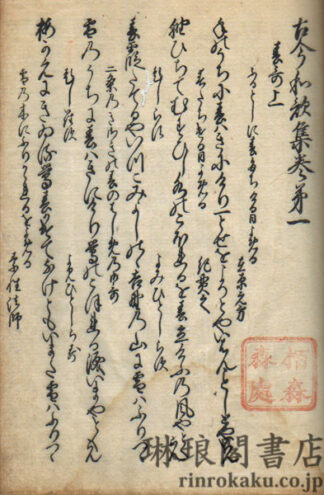 古今和歌集巻第一
春哥上
ふるとしに春たちける日よめる
在原元方
年のうちに春はきにけり一とせをこそとやいはんことしとやいはん
春たちける日よめる
紀貫之
袖ひちてむすひし水のこほれるを春立けふの風やとくらん
題しらす
よみ人しらす
春霞たてるやいつこみよしのゝ吉野の山に雪はふりつゝ
二条のきさきの春のはしめの御哥
雪のうちに春はきにけり鶯のこほれる涙いまやとくらん
題しらす
よみ人しらす
梅かえにきゐる鶯春かけてなけともいまた雪はふりつゝ
雪の木にふりかゝれるをよめる
素性法師
琳琅閣書店
rinrokaku.co.jp